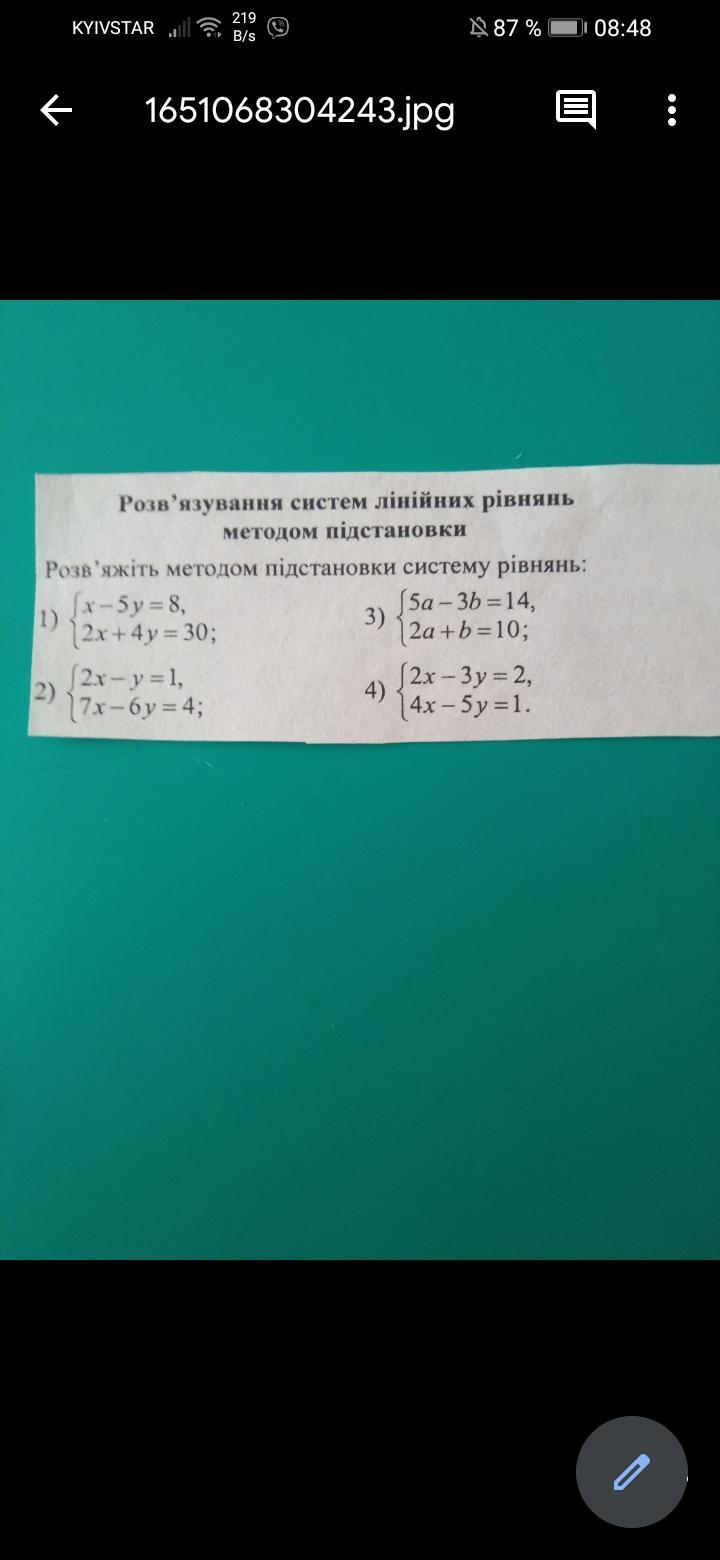 KYIVSTAR 219 B/s 87 % 08:48
1651068304243.jpg
Розв’язування систем лінійних рівнянь
методом підстановки
Розв’яжіть методом підстановки систему рівнянь:
1) {x – 5y = 8,
2x + 4y = 30;
3) {5a – 3b = 14,
2a + b = 10;
2) {2x – y = 1,
7x – 6y = 4;
4) {2x – 3y = 2,
4x – 5y = 1.